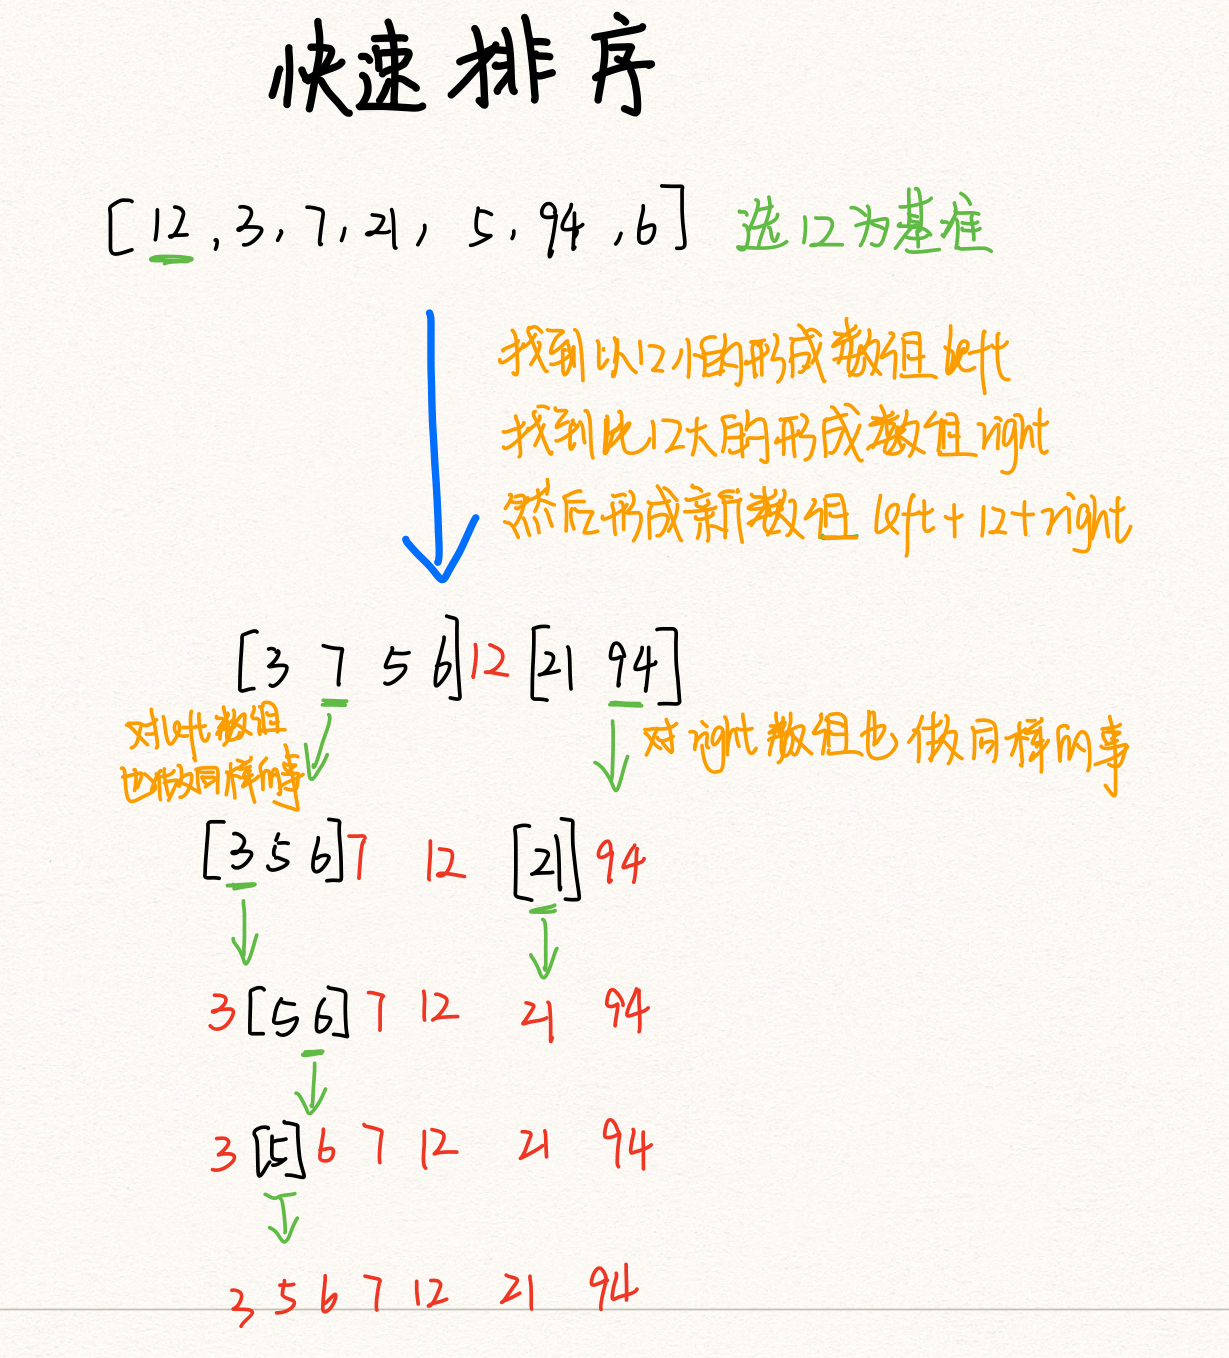 快速排序
[12, 3, 7, 21, 5, 94, 6] 选12为基准
找到以12小的形成数组left
找到比12大的形成数组right
然后形成新数组left+12+right
[3 7 5 6] 12 [21 94]
对left数组
也做同样的事
对right数组也做同样的事
[3 5 6] 7 12 [21] 94
3 [5 6] 7 12 21 94
3 [5] 6 7 12 21 94
3 5 6 7 12 21 94